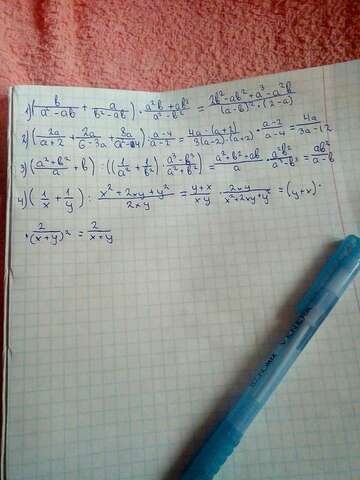 1) (b/(a²-ab) + a/(b²-ab)) · (a²b+ab²)/(a²-b²) = (2b²-ab²+a³-a²b)/((a-b)²·(2-a))
2) (2a/(a+2) + 2a/(6-3a) + 8a/(a²-4)) · (a-4)/(a-2) = (4a·(a+2))/(3(a-2)·(a+2)) · (a-2)/(a-4) = 4a/(3a-12)
3) ((a²+b²)/a + b) : ((1/a² + 1/b²) · (a³-b³)/(a²+b²)) = (a²+b²+ab)/a · a²b²/(a³-b³) = ab²/(a-b)
4) (1/x + 1/y) : (x²+2xy+y²)/(2xy) = (y+x)/(xy) · 2xy/(x²+2xy+y²) = (y+x) ·
· 2/(x+y)² = 2/(x+y)